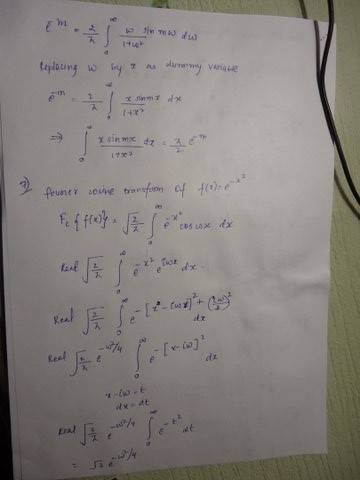 e^-m = 2/π ∫_0^∞ ω sin mω / 1+ω² dω
Replacing ω by x as dummy variable
e^-m = 2/π ∫_0^∞ x sin mx / 1+x² dx
⇒ ∫_0^∞ x sin mx / 1+x² dx = π/2 e^-m
7) Fourier cosine transform of f(x) = e^-x²
F_c {f(x)} = √(2/π) ∫_0^∞ e^-x² cos ωx dx
Real √(2/π) ∫_0^∞ e^-x² e^iωx dx
Real √(2/π) ∫_0^∞ e^-[x - iω]² + (iω/2)² dx
Real √(2/π) e^-ω²/4 ∫_0^∞ e^-[x-iω]² dx
x-iω = t
dx = dt
Real √(2/π) e^-ω²/4 ∫_0^∞ e^-t² dt
= e^-ω²/4